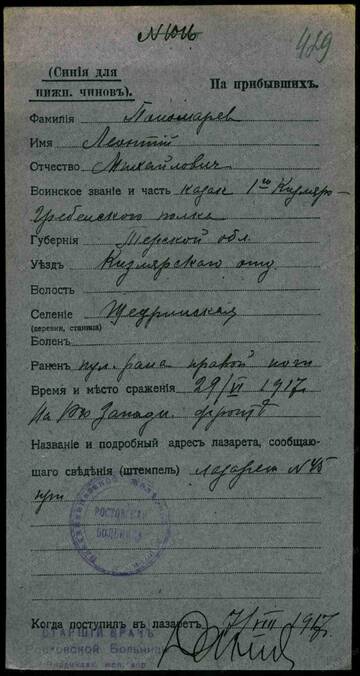 № 1016
429
(Синія для
нижн. чиновъ).
На прибывшихъ.
Фамилія Пономарев
Имя Леонтій
Отчество Михайлович
Воинское званіе и часть казак 1го Кизляро-
Гребенского полка
Губернія Терской обл.
Уѣздъ Кизлярского отд
Волость
Селеніе Щедринская
(деревня, станица)
Боленъ
Раненъ пул. рана правой ноги
Время и мѣсто сраженія 29/VI 1917
На Юго Западн. фронтѣ
Названіе и подробный адресъ лазарета, сообщаю-
щаго свѣдѣнія (штемпель) лазарет № 45
при
РОСТОВСКАЯ
БОЛЬНИЦА
Когда поступилъ въ лазаретъ 7/VIII 1917г.
СТАРШІЙ ВРАЧЪ
Ростовской Больницы
Владикавк. жел. дор.